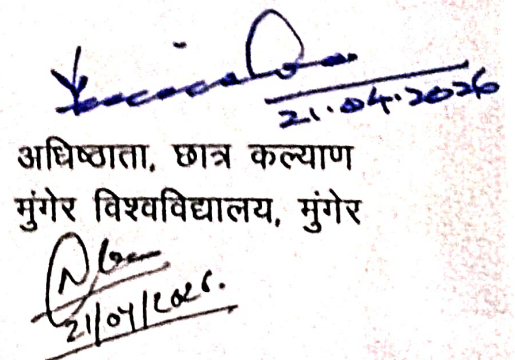 21.04.2026
अधिष्ठाता, छात्र कल्याण
मुंगेर विश्वविद्यालय, मुंगेर
21/04/2026.